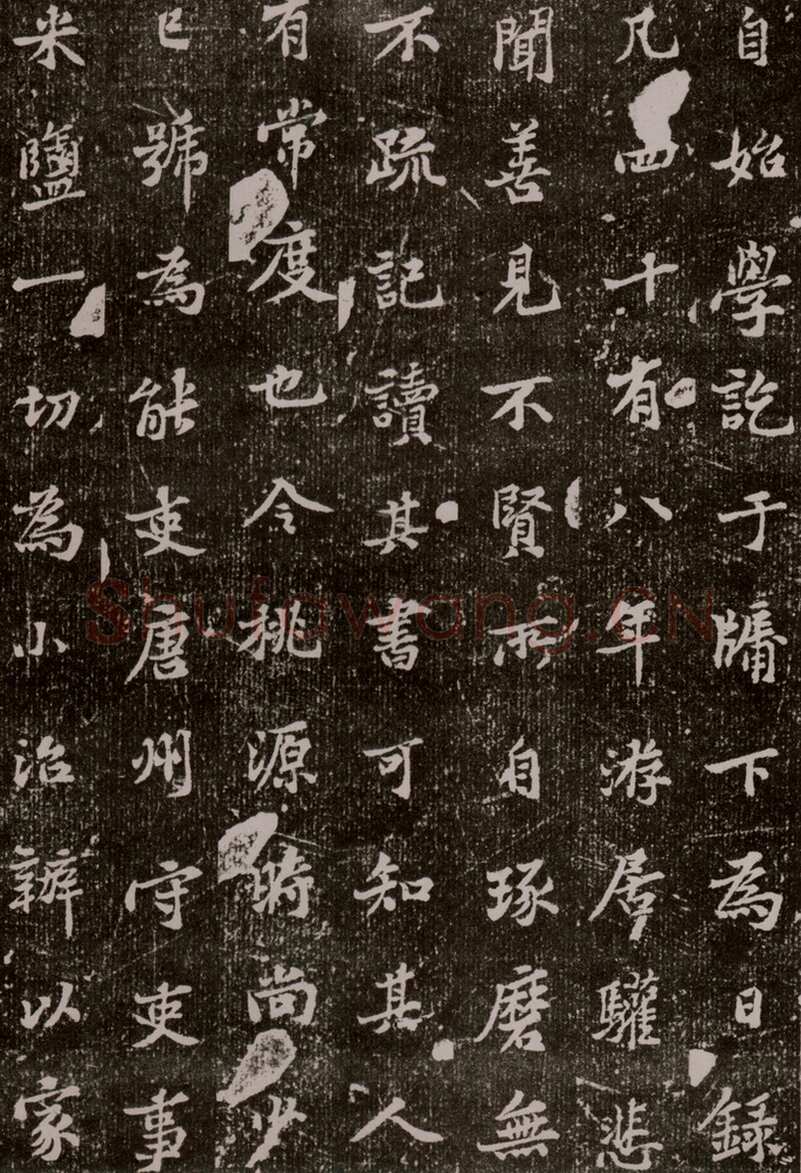 自始學訖于牖下為日錄
凡四十有八年游居驩悲
聞善見不賢所自琢磨無
不疏記讀其書可知其人
有常度也令桃源時尚少
已號為能吏唐州守吏事
米鹽一切為小治辦以家
Shufawang.CN